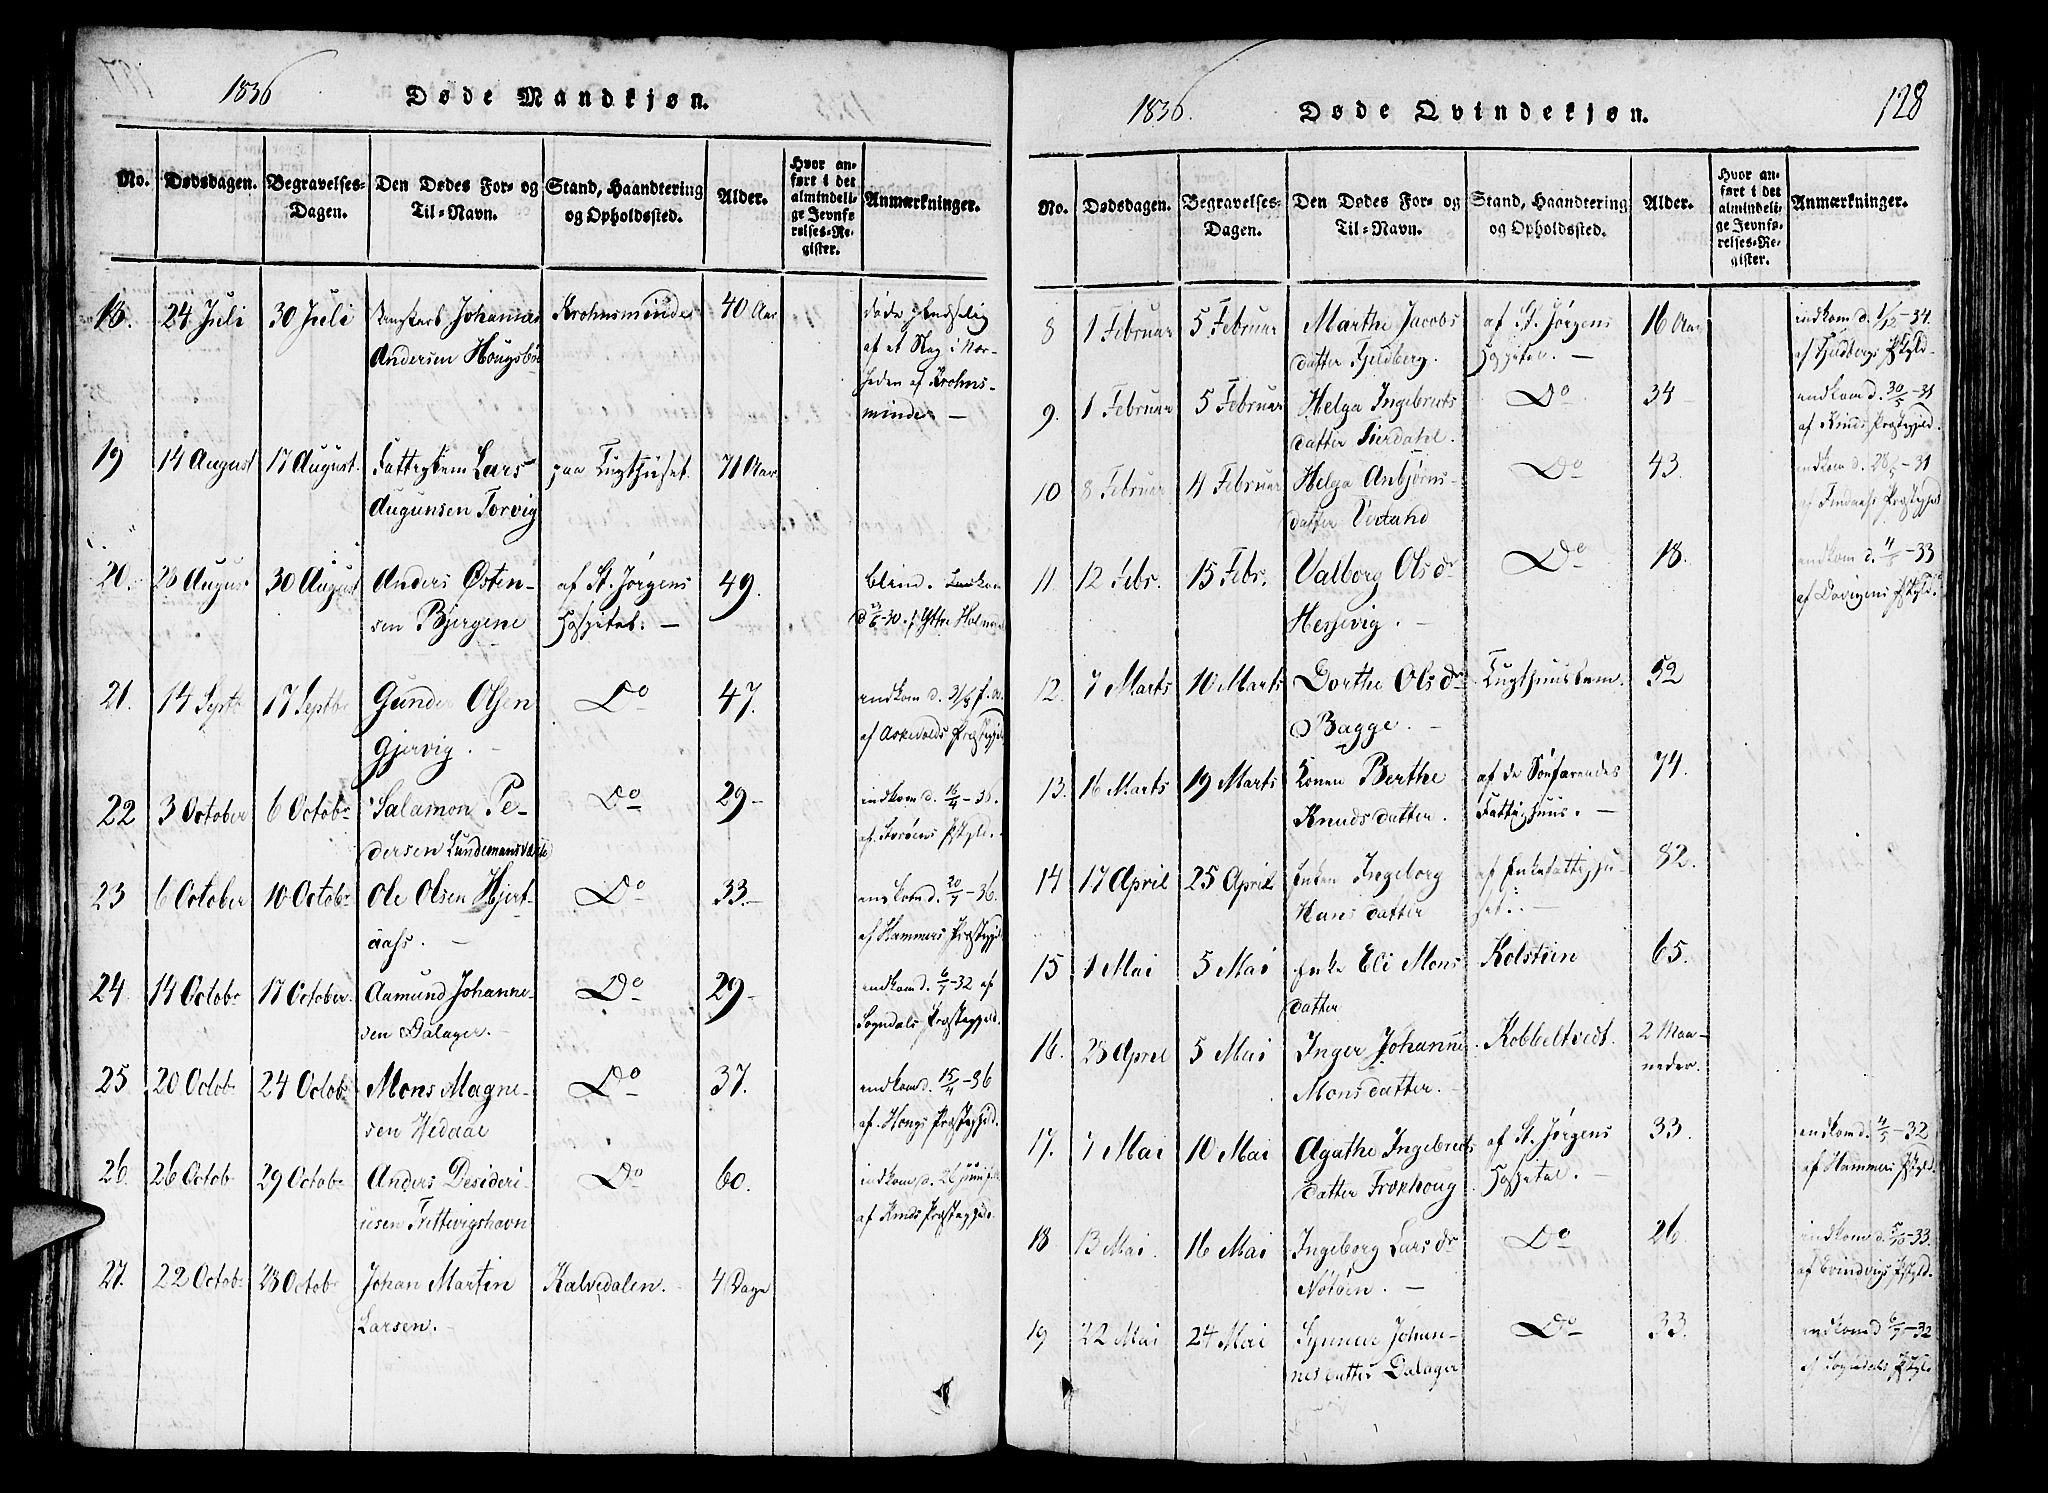 1836
Døde Mandkjøn.
No. Dødsdagen. Begravelses-Dagen. Den Dødes For- og Til-Navn. Stand, Haandtering og Opholdssted. Alder. Hvor anført i det almindelige Jevnførelses-Register. Anmærkninger.
18. 24 Juli 30 Juli Johannes Krohnsminde 40 Aar
Andersen Hougsbøe af et Slag i Nær-
heden af Krohns-
minde —
19 14 August 17 August. Fattiglem Lars paa Tugthuset. 71 Aar
Augunsen Torvig
20. 28 August 30 August Anders Østen- af St. Jørgens 49. blind.
sen Bjergene Hospital. —
21. 14 Septb 17 Septbr Gunder Olsen Do 47. indkom d.
Gjervig. — af Askevolds Præstegjeld
22 3 October 6 Octobr Salamon Pe- Do 29 — indkom d. 16/4 – 36.
dersen af Størens Pstgld.
23 6 October 10 Octobr Ole Olsen Hjert- Do 33. — indkom d. 20/7 – 36.
aas. — af Hammers Præstegjd.
24 14 Octobr 17 October. Aamund Johanne- Do 29 — indkom d. 6/7 – 32 af
sen Dalager. — Sogndals Præstegjeld.
25 20 Octobr 24 Octobr Mons Magne- Do 37. indkom d. 15/4 – 36
sen Hedaal af Hougs Præstegjeld.
26. 26 Octobr 29 Octobr Anders Desideri- Do 60. indkom d.
usen Frittvigshavn af Kinds Præstegjeld.
27. 22 Octobr 23 Octobr Johan Marten Kalvedalen. 4 Dage
Larsen. —
1836.
Døde Qvindekjøn.
128
No. Dødsdagen. Begravelses-Dagen. Den Dødes For- og Til-Navn. Stand, Haandtering og Opholdssted. Alder. Hvor anført i det almindelige Jevnførelses-Register. Anmærkninger.
8 1 Februar 5 Februar Marthe Jacobs af St. Jørgens 16 Aar indkom d. 1/12 – 34.
datter Fjeldberg. Hospital. — af Fjeldbergs Pstgld.
9. 1 Februar 5 Februar Helga Ingebrets Do 34 indkom d. 30/5 – 31
datter Førdahl. af Kinds Præstegjeld.
10 8 Februar 4 Februar Helga Anbjørns- Do 43. indkom d. 28/5 – 31
datter af Findaas Præstegjeld
11. 12 Febr. 15 Febr. Valborg Olsdr Do 18. indkom d. – 33
Hesjevig. — af Davigens Pstgld.
12. 7 Marts 10 Marts Dorthe Olsdr Tugthuuslem. 52
Bagge. —
13. 16 Marts 19 Marts Konen Berthe af de Søefarendes 74.
Knudsdatter. Fattighuus. —
14 17 April 25 April Enken Ingeborg af Enkefattighu- 82.
Hansdatter set. —
15 1 Mai 5 Mai Enke Eli Mons Kolsteen 65.
datter
16. 23 April 5 Mai Inger Johanne Kobbeltvedt. 2 Maa-
Monsdatter. — neder
17. 7 Mai 10 Mai Agathe Ingebrets af St. Jørgens 33. indkom d. 4/5 – 32
datter Froxhoug. Hospital. — af Hammers Pstgld.
18 13 Mai. 16 Mai Ingeborg Larsdr Do 26. indkom d. – 33.
Nötöen. — af Evindvigs Pstgld.
19 22 Mai 24 Mai Johan- Do 33. indkom d. 6/7 – 32
nesdatter Dalager af Sogndals Pstgld